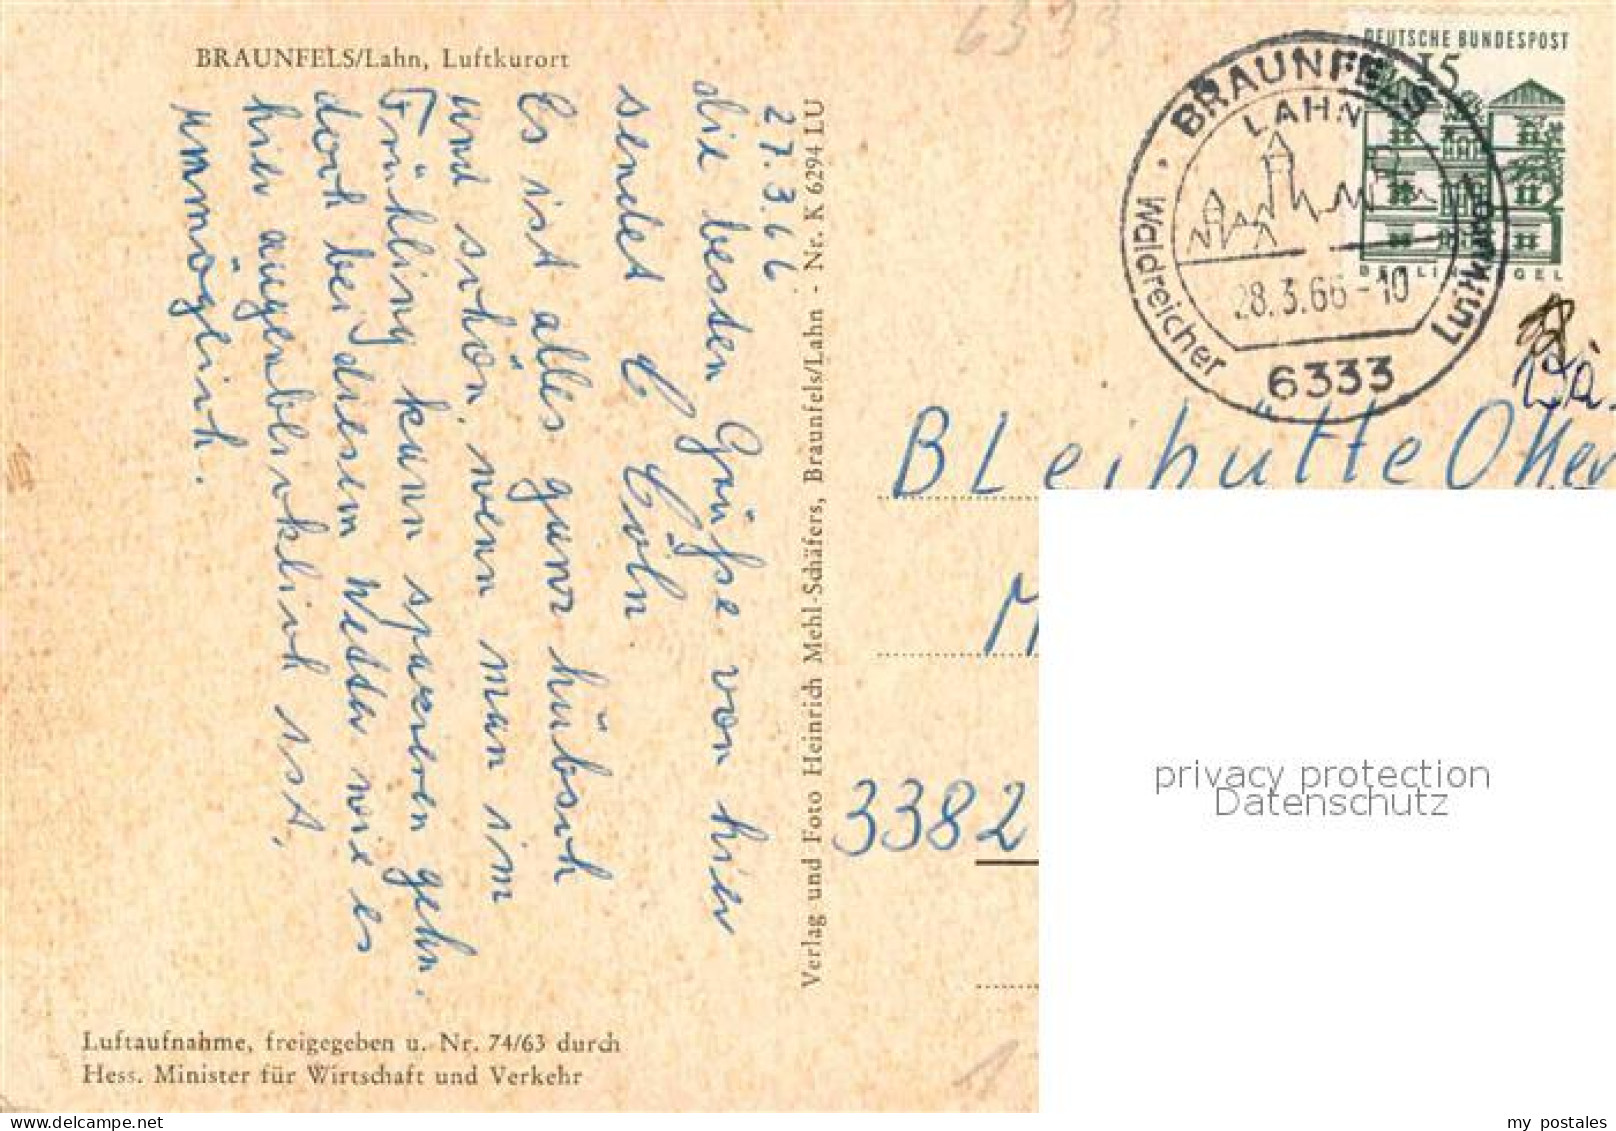 6333
BRAUNFELS/Lahn, Luftkurort
27.3.66
die besten Grüße von hier
sendet C Cöln.
Es ist alles ganz hübsch
und schön, wenn man im
Frühling kann spazieren gehn.
doch bei diesem Wetter wie es
hier augenblicklich ist,
unmöglich.
Verlag und Foto Heinrich Mehl-Schäfers, Braunfels/Lahn - Nr. K 6294 LU
Luftaufnahme, freigegeben u. Nr. 74/63 durch
Hess. Minister für Wirtschaft und Verkehr
DEUTSCHE BUNDESPOST
15
BERLIN TEGEL
BRAUNFELS
LAHN
Waldreicher Luftkurort
28.3.66-10
6333
BLeihütte Oker
3382
privacy protection
Datenschutz
my postales